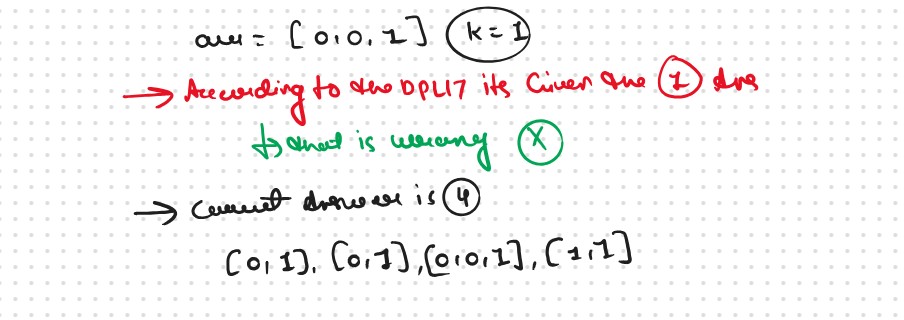 arr = [0,0,1] k=1
→ According to the DPL17 its Given the 1 Ans
↳ that is wrong X
→ Correct Answer is 4
[0,1], [0,1], [0,0,1], [1,1]